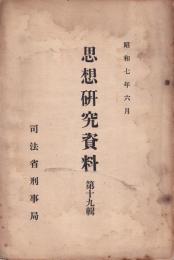 昭和七年六月
思想研究資料 第十九輯
司法省刑事局